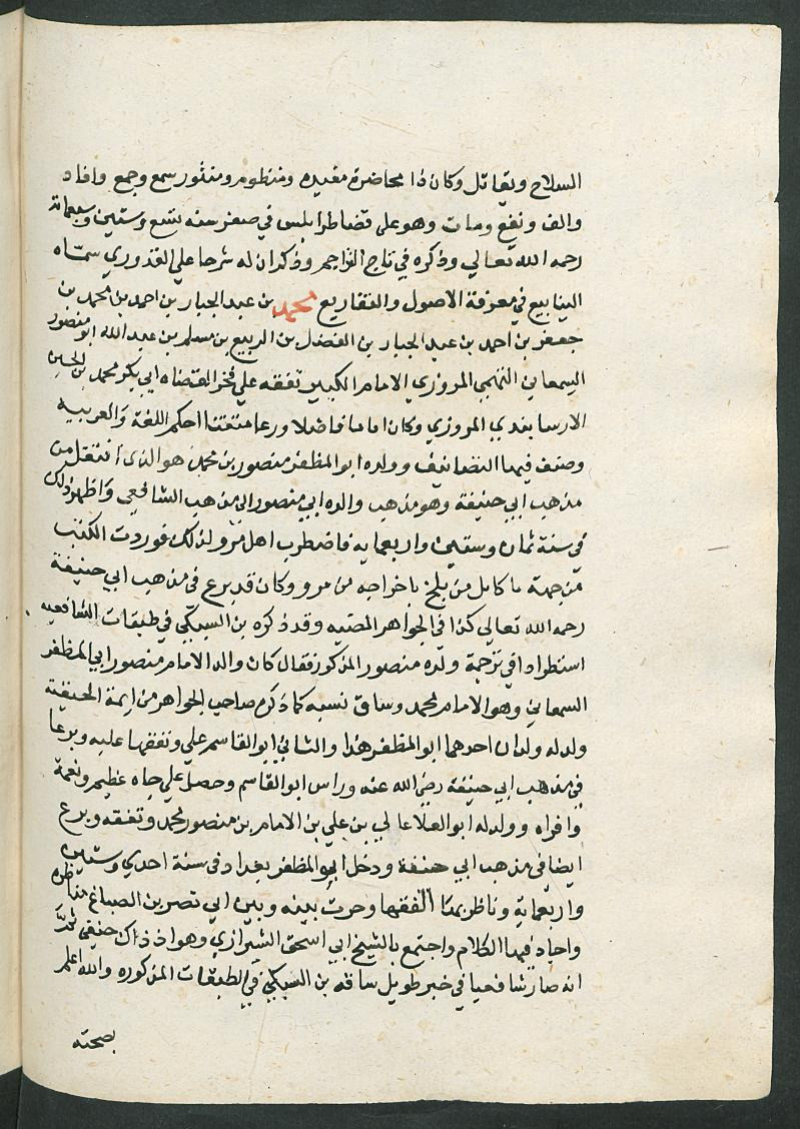 السلاح ويقاتل وكان ذا محاضرة مفيده ومنظوم ومنثور سمع وجمع وافاد
والف ونفع ومات وهو على قضا طرابلس في صفر سنه تسع وستين وسبعمائة
رحمه الله تعالي وذكره في تاج التراجم وذكر ان له شرحا علي القدوري سماه
الينابيع في معرفة الاصول والتفاريع محمد بن عبد الجبار بن احمد بن محمد بن
جعفر بن احمد بن عبد الجبار بن الفضل بن الربيع بن مسلم بن عبد الله ابو منصور
السمعاني التميمي المروزي الامام الكبير تفقه علي فخر القضاه ابي بكر محمد بن الحسين
الارسابندي المروزي وكان اماما فاضلا ورعا متقنا احكم اللغة والعربيه
وصنف فيها التصانيف وولده ابو المظفر منصور بن محمد هو الذي انتقل من
مذهب ابي حنيفة وهو مذهب والده ابي منصور الى مذهب الشافعي واظهر ذلك
في سنة ثمان وستين واربعمايه فاضطرب اهل مرو لذلك فوردت الكتب
من جهة ما كابل من بلخ باخراجه من مرو وكان قد برع في مذهب ابي حنيفة
رحمه الله تعالي كذا في الجواهر المضيه وقد ذكره بن السبكي في طبقات الشافعيه
استطرادا في ترجمة ولده منصور المذكور فقال كان والد الامام منصور ابي المظفر
السمعاني وهو الامام محمد وساق نسبه كما ذكره صاحب الجواهر من ايمة الحنيفة
ولد له ولدان احدهما ابو المظفر هذا والثاني ابو القاسم علي وتفقها عليه وبرعا
في مذهب ابي حنيفة رضي الله عنه وراس ابو القاسم وحصل علي جاه عظيم ونعمة
وافراه وولد له ابو العلا عالي بن علي بن الامام بن منصور محمد وتفقه وبرع
ايضا في مذهب ابي حنيفة ودخل ابو المظفر بغداد في سنة احدي وستين
واربعماية وناظر بها الفقها وجرت بينه وبين ابي نصر بن الصباغ مناظره
واجاد فيها الكلام واجتمع بالشيخ ابي اسحق الشيرازي وهو اذ ذاك حنيفي ثم
انه صار شافعيا في خبر طويل ساقه بن السبكي في الطبقات المذكوره والله اعلم
بصحته